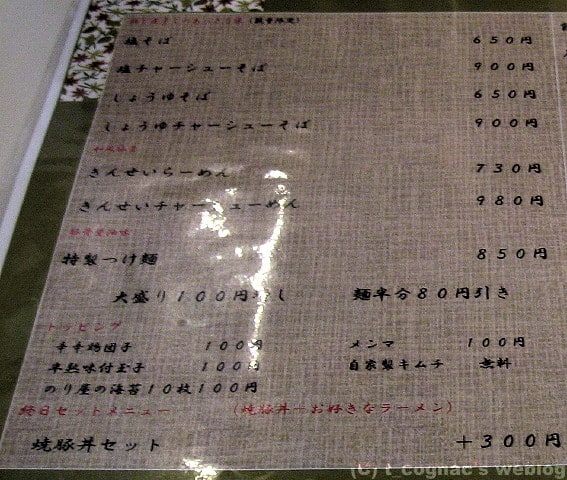 塩そば 650円
塩チャーシューそば 900円
しょうゆそば 650円
しょうゆチャーシューそば 900円
きんせいらーめん 730円
きんせいチャーシューめん 980円
特製つけ麺 850円
大盛り100円増し 麺半分80円引き
トッピング
辛辛鶏団子 100円 メンマ 100円
半熟味付玉子 100円 自家製キムチ 無料
のり屋の海苔10枚100円
終日セットメニュー (焼豚丼+お好きなラーメン)
焼豚丼セット +300円
(C) t_cognac's weblog